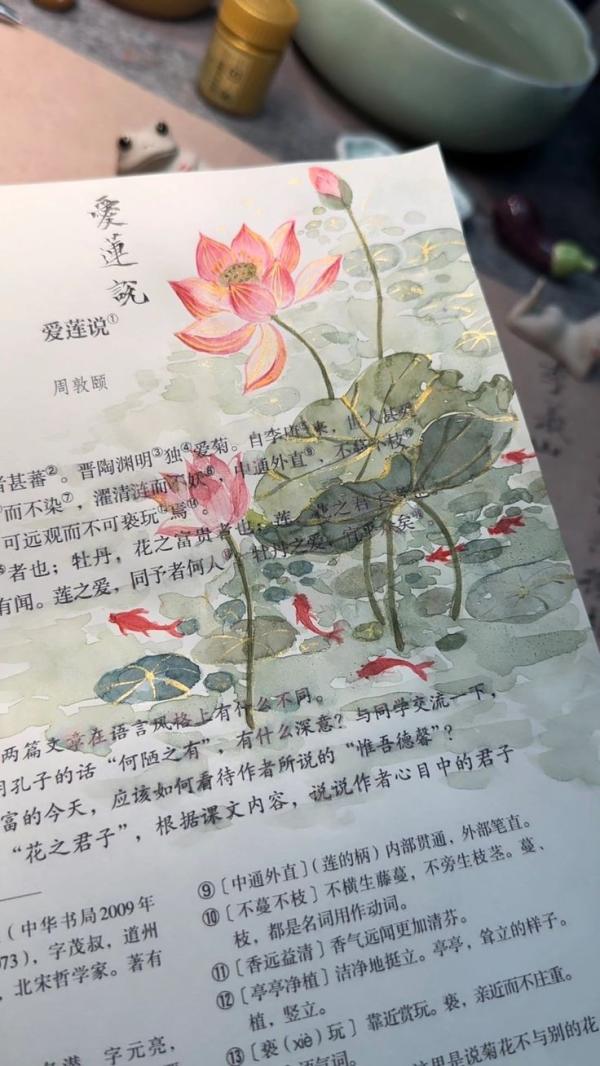 愛蓮説
爱莲说①
周敦颐
甚蕃②。晋陶渊明③独④爱菊。自李唐⑤来，世人甚爱
而不染⑦，濯清涟而不妖⑧，中通外直⑨，不蔓不枝⑩
可远观而不可亵玩
者也；牡丹，花之富贵者也；莲，花之君
有闻。莲之爱，同予者何人？牡丹之爱，宜乎众矣
两篇文章在语言风格上有什么不同。
孔子的话“何陋之有”，有什么深意？与同学交流一下，
富的今天，应该如何看待作者所说的“惟吾德馨”？
“花之君子”，根据课文内容，说说作者心目中的君子
（中华书局2009年
073），字茂叔，道州
，北宋哲学家。著有
字元亮，
⑨［中通外直］（莲的柄）内部贯通，外部笔直。
⑩［不蔓不枝］不横生藤蔓，不旁生枝茎。蔓、
枝，都是名词用作动词。
⑪［香远益清］香气远闻更加清芬。
⑫［亭亭净植］洁净地挺立。亭亭，耸立的样子。
植，竖立。
⑬［亵（xiè）玩］靠近赏玩。亵，亲近而不庄重。
语气词。
这里是说菊花不与别的花